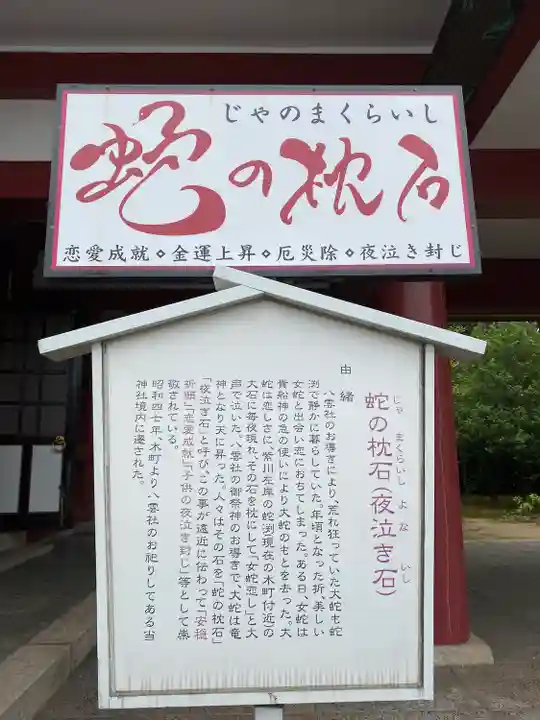 じゃのまくらいし
蛇の枕石
恋愛成就◇金運上昇◇厄災除◇夜泣き封じ
じゃ まくらいし よな いし
蛇の枕石(夜泣き石)
由緒
八雲社のお導きにより、荒れ狂っていた大蛇も蛇
渕で静かに暮らしていた。年頃となった折、美しい
女蛇と出会い恋におちてしまった。ある日、女蛇は
貴船神の急の使いにより大蛇のもとを去った。大
蛇は恋しさに、紫川左岸の蛇渕(現在の木町付近)の
大石に毎夜現れ、その石を枕にして「女蛇恋し」と大
声で泣いた。八雲社の御祭神のお導きで、大蛇は竜
神となり天に昇った。人々はその石を「蛇の枕石」
「夜泣き石」と呼び、この事が遠近に伝わって「安穏
祈願」「恋愛成就」「子供の夜泣き封じ」等として崇
敬されている。
昭和四七年、木町より八雲社のお祀りしてある当
神社境内に遷された。